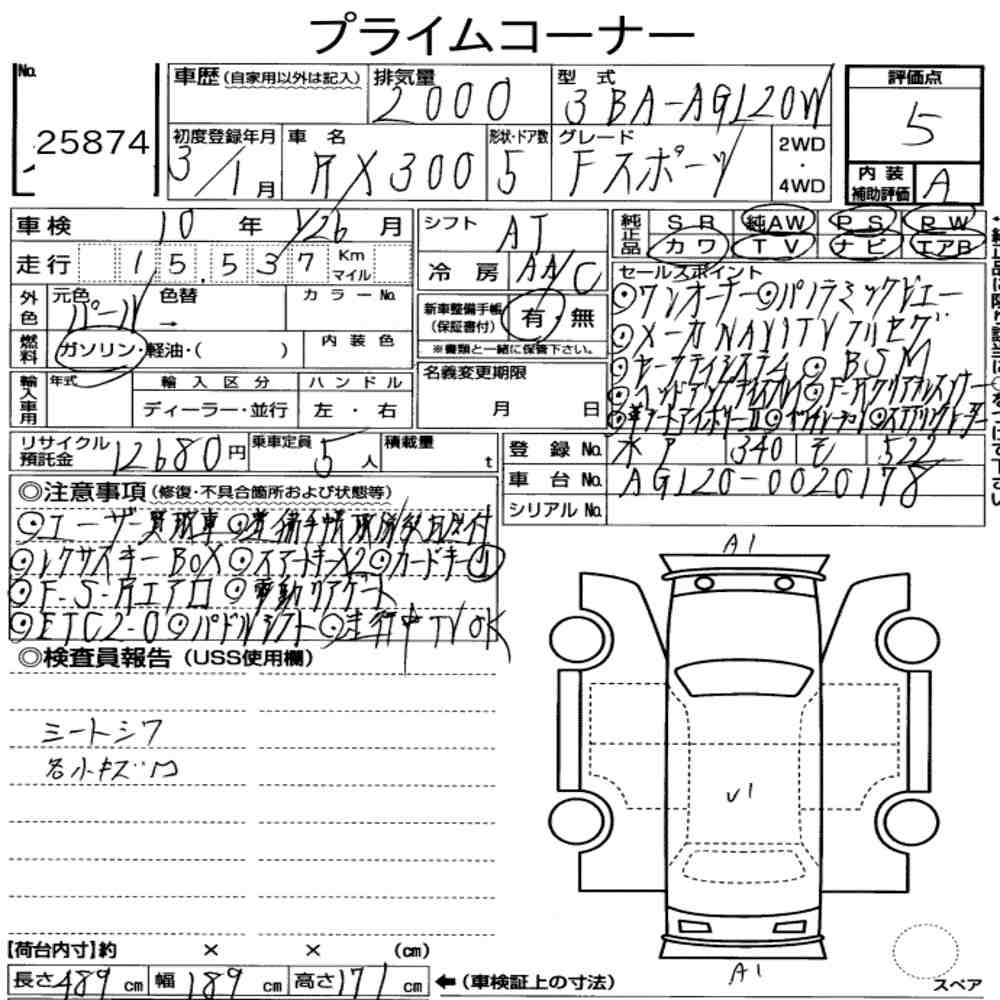 プライムコーナー
No. 25874
車歴 (自家用以外は記入)
排気量 2000
型式 3BA-AGL20W
評価点 5
初度登録年月 3/1月
車名 RX300
形状・ドア数 5
グレード Fスポーツ
2WD・4WD
内装補助評価 A
車検 10年 1/26月
シフト AT
純正品 SR 純AW PS PW
カワ TV ナビ エアB
走行 15,537 Km マイル
冷房 AA/C
セールスポイント
外色 元色 パール 色替 → カラーNo.
新車整備手帳(保証書付) 有・無
※書類と一緒に保管下さい。
◎ワンオーナー◎パノラミックビュー
◎メーカNAVI TVフルセグ
燃料 ガソリン・軽油・( ) 内装色
◎セーフティシステム ◎BSM
輸入車用 年式 輸入区分 ハンドル
ディーラー・並行 左・右
名義変更期限 月 日
リサイクル預託金 12680円
乗車定員 5人
積載量 t
登録No. 水戸 340 も 522
車台No. AGL20-0020178
シリアルNo.
◎注意事項 (修復・不具合箇所および状態等)
◎ユーザー買取車
◎レクサスキーBOX◎スマートキーX2◎カードキー①
◎F・S・Rエアロ ◎電動リアゲート
◎ETC2.0◎パドルシフト◎走行中TVOK
◎検査員報告 (USS使用欄)
シートシワ
各小キズ凹
A1
U1
A1
【荷台内寸】約 × × (cm)
長さ489cm 幅189cm 高さ171cm ←(車検証上の寸法)
スペア